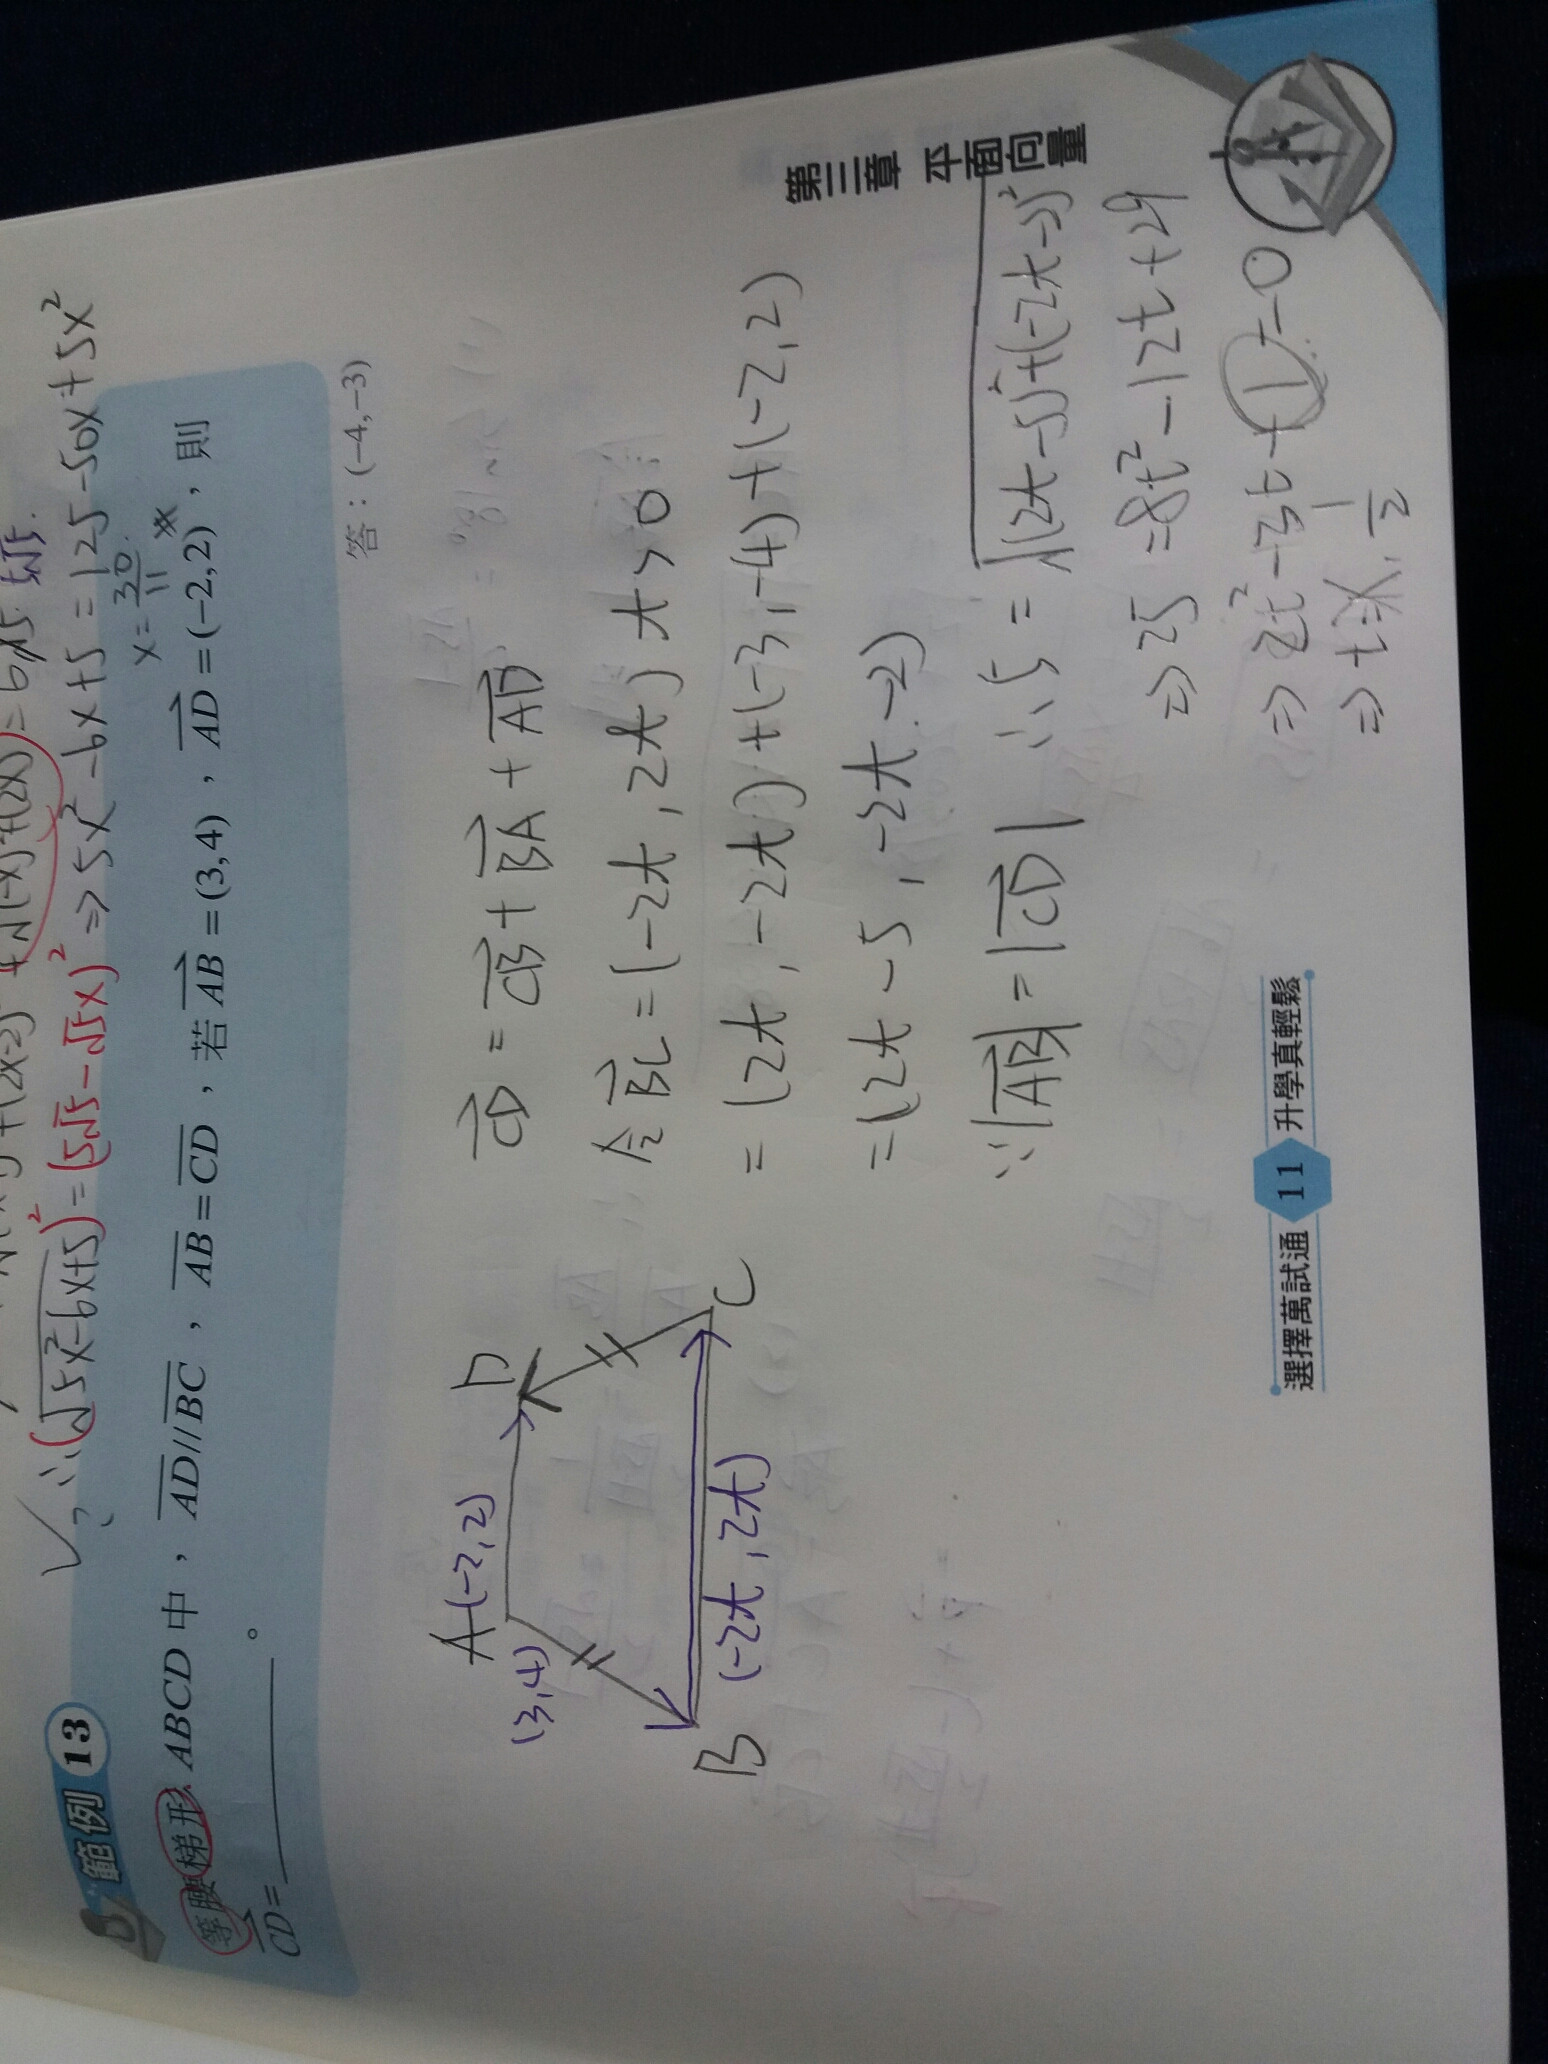 ∴(√5x²-6x+5)² = (5√5-√5x)² ⇒ 5x²-6x+5 = 125-50x+5x²
x = 30/11
範例 13
等腰梯形 ABCD 中，AD//BC，AB=CD，若 AB=(3,4)，AD=(−2,2)，則
CD=＿＿＿＿。
答：(−4,−3)
A (-2,2) D
(3,4)
B (-2t, 2t) C
CD = CB + BA + AD
令 BC = (-2t, 2t) t>0
= (2t, -2t) + (-3, -4) + (-2, 2)
= (2t-5, -2t-2)
∵ |AB| = |CD| ∴ 5 = √(2t-5)²+(-2t-2)²
⇒ 25 = 8t²-12t+29
⇒ 2t²-3t+1=0
⇒ t=1, 1/2
選擇萬試通 11 升學真輕鬆
第三章 平面向量